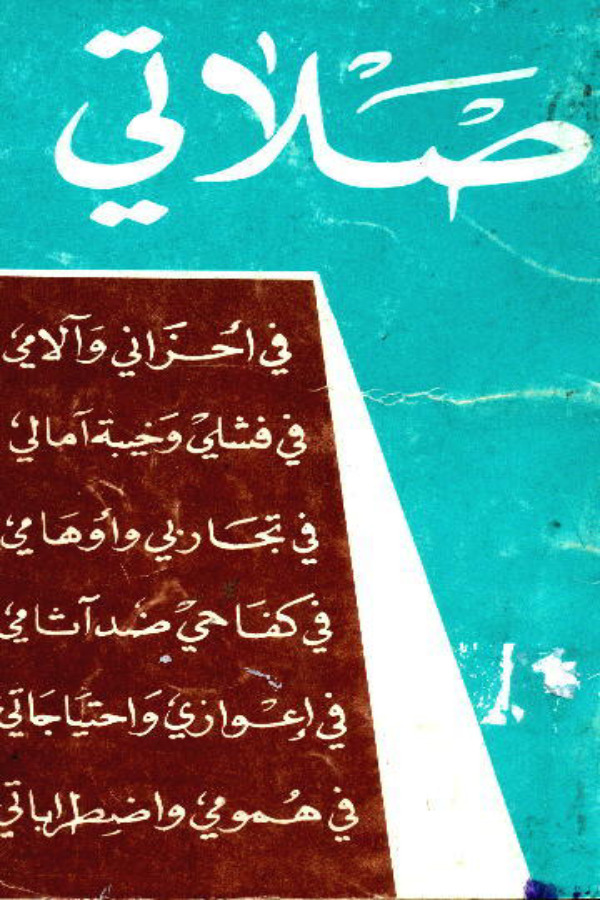 صلاتي
في أحزاني وآلامي
في فشلي وخيبة آمالي
في تجاربي وأوهامي
في كفاحي ضد آثامي
في إعوازي واحتياجاتي
في همومي واضطراباتي